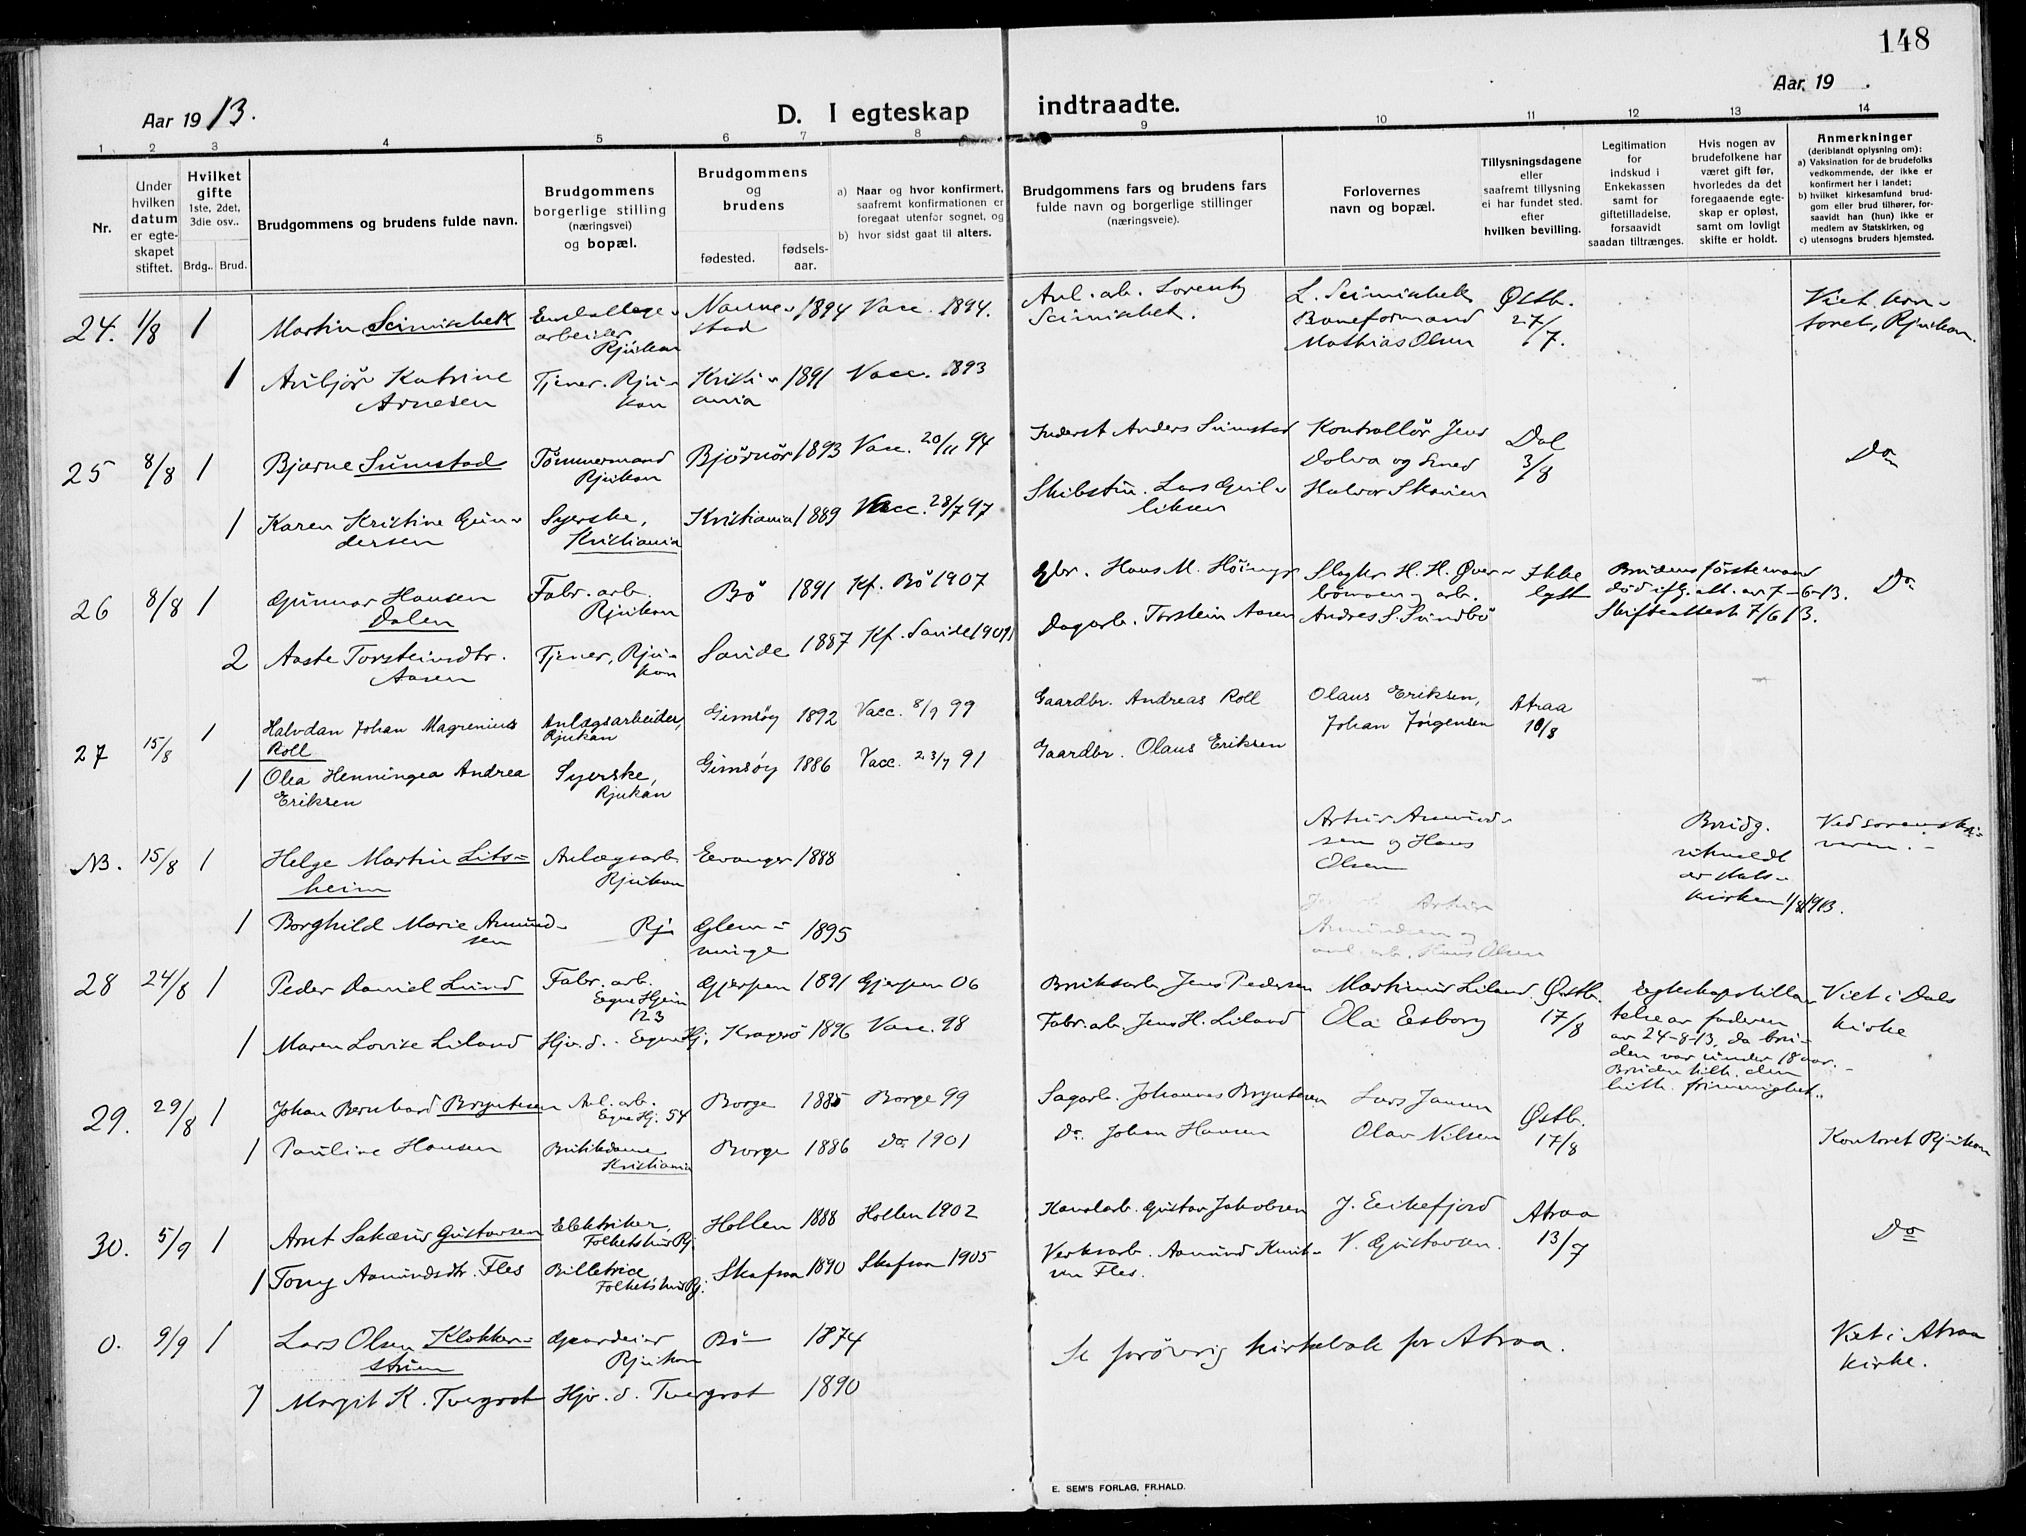 148
Aar 1913.
D. I egteskap indtraadte.
Aar 19 .
1 2 3 4 5 6 7 8 9 10 11 12 13 14
Nr.
Under hvilken datum er egteskapet stiftet.
Hvilket gifte
1ste, 2det, 3die osv..
Brdg.. Brud.
Brudgommens og brudens fulde navn.
Brudgommens borgerlige stilling (næringsvei) og bopæl.
Brudgommens og brudens
fødested.
fødselsaar.
a) Naar og hvor konfirmert, saafremt konfirmationen er foregaat utenfor sognet, og
b) hvor sidst gaat til alters.
Brudgommens fars og brudens fars fulde navn og borgerlige stillinger (næringsveie).
Forlovernes navn og bopæl.
Tillysningsdagene eller saafremt tillysning ei har fundet sted. efter hvilken bevilling.
Legitimation for indskud i Enkekassen samt for giftetilladelse, forsaavidt saadan tiltrænges.
Hvis nogen av brudefolkene har været gift før, hvorledes da det foregaaende egteskap er opløst, samt om lovligt skifte er holdt.
Anmerkninger (deriblandt oplysning om):
a) Vaksination for de brudefolks vedkommende, der ikke er konfirmert her i landet;
b) hvilket kirkesamfund brudgom eller brud tilhører, forsaavidt han (hun) ikke er medlem av Statskirken, og
c) utensogns bruders hjemsted.
24. 1/8 1 Martin Seimischek Emballagearbeider Rjukan 1894 Vacc. 1894. Anl. arb. Lorentz Seimischek. L. Seimischek Baneformand Mathias Olsen Østb. 27/7. Viet kontoret, Rjukan.
1 Anbjør Katrine Arnesen Tjener. Rjukan Kristiania 1891 Vacc. 1893
25 8/8 1 Bjarne Sumstad Tømmermand Rjukan Bjørnør 1893 Vacc. 20/11 94 Inderst Anders Sumstad Kontrollør Jens Dolva og Smed Halvor Skarien Dal 3/8 Do
1 Karen Kristine Gundersen Syerske, Kristiania Kristiania 1889 Vacc. 28/7 97
26 8/8 1 Gunnar Hansen Dalen Fabr. arb. Rjukan Bø 1891 Kf. Bø 1907 Gbr. Hans M. Slagter H. H. og arb. Andres S. Sundbø Ikke lyst Brudens første mand død ifg. att. av 7-6-13. Skifteattest 7/6 13. Do
2 Aaste Torsteindtr. Aasen Tjener, Rjukan Sauide 1887 Kf. Dagarb. Torstein Aasen
27 15/8 1 Halvdan Johan Magrenius Roll Anlægsarbeider, Rjukan Gimsøy 1892 Vacc. 8/9 99 Gaardbr. Andreas Roll Olaus Eriksen, Johan Jørgensen Atraa 10/8
1 Olea Henningea Andrea Eriksen Syerske, Rjukan Gimsøy 1886 Vacc. 23/7 91 Gaardbr. Olaus Eriksen
NB. 15/8 1 Helge Martin Litsheim Anlægsarb Rjukan Evanger 1888 Artur Amundsen og Hans Olsen Brudg. utmeldt av statskirken 1/8 1913. Ved sorenskriveren.
1 Borghild Marie Amundsen Rj. Glemminge 1895
28 24/8 1 Peder Daniel Lund Fabr. arb. Egne Hjem 123 Gjerpen 1891 Gjerpen 06 Bruksarb Jens Pedersen Martinus Liland Ola Esborg Østb. 17/8 Egteskapstillatelse av faderen av 24-8-13, da bruden var under 18 aar. Viet i Dals kirke
1 Maren Lovise Liland Hjv. d. Egne Hj. Kragerø 1896 Vacc. 98 Fabr. arb. Jens H. Liland
29. 29/8 1 Johan Bernhard Bryntesen Anl. arb. Egne Hj. 54 Borge 1885 Borge 99 Sagarb. Johannes Bryntesen Lars Jansen Olav Nilsen Østb. 17/8 Kontoret Rjukan
1 Pauline Hansen Butikdame Kristiania Borge 1886 Do. 1901 Do. Johan Hansen
30. 5/9 1 Arnt Sakæus Gustavsen Elektriker, Folketshus Rj. Hollen 1888 Hollen 1902 Kanalarb. Gustav Jakobsen J. Eikefjord V. Gustavsen. Atraa 13/7 Do
1 Tony Aamundsdtr. Fles Billetrice Folketshus Rj. Skafsaa 1890 Skafsaa 1905 Verksarb. Aamund Knutsen Fles.
0. 9/9 1 Lars Olsen Klokkerstuen Gaardeier Rjukan Bø 1874 Se forøvrig kirkebok for Atraa. Viet i Atraa kirke.
1 Margit K. Tvergrot Hjv. d. Tvergrot 1890
E. SEM'S FORLAG, FR.HALD.